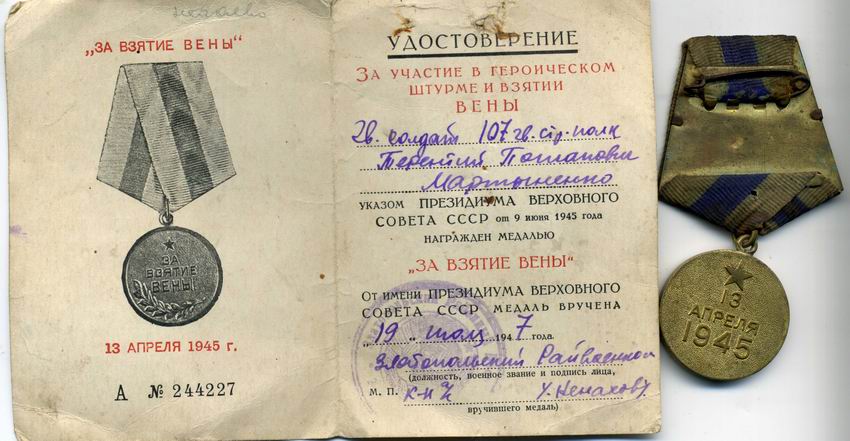 „ЗА ВЗЯТИЕ ВЕНЫ"
ЗА
ВЗЯТИЕ
ВЕНЫ
13 АПРЕЛЯ 1945 г.
А № 244227
УДОСТОВЕРЕНИЕ
ЗА УЧАСТИЕ В ГЕРОИЧЕСКОМ
ШТУРМЕ И ВЗЯТИИ
ВЕНЫ
Гв. солдат 107 гв. стр. полк
Терентий Потапович
Мартыненко
УКАЗОМ ПРЕЗИДИУМА ВЕРХОВНОГО
СОВЕТА СССР от 9 июня 1945 года
НАГРАЖДЕН МЕДАЛЬЮ
„ЗА ВЗЯТИЕ ВЕНЫ"
От имени ПРЕЗИДИУМА ВЕРХОВНОГО
СОВЕТА СССР МЕДАЛЬ ВРУЧЕНА
„19" 1947 года
Златопольский Райвоенком
(должность, военное звание и подпись лица,
М. П.
вручившего медаль)
13
АПРЕЛЯ
1945